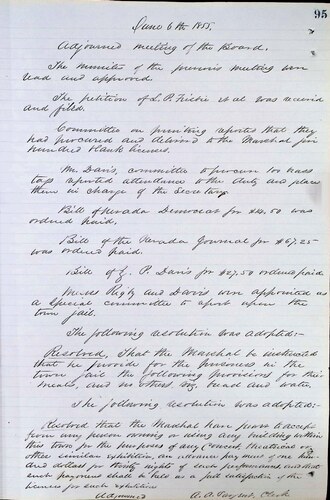 95
June 6th 1855.
Adjourned meeting of the Board.
The minutes of the previous meeting were
read and approved.
The petition of L. P. et al was received
and filed.
Committee on printing reported that they
had procured and delivered to the Marshal five
hundred blank licenses.
Mr. Davis, committee to procure 100 brass
tags reported attendance to the duty and place
them in charge of the Secretary.
Bill of Nevada Democrat for $ was
ordered paid.
Bill of the Nevada Journal for $67.25
was ordered paid.
Bill of Z. P. Davis for $27.50 ordered paid
Messrs Rigby and Davis were appointed as
a special committee to report upon the
town jail.
The following resolution was adopted:-
Resolved, That the Marshal be instructed
that he provide for the prisoners in the
town jail the following provisions for their
meals, and no others, viz, bread and water
The following resolution was adopted:-
Resolved that the Marshal have power to accept
from any person owning or using any building within
this town for the purpose of any Concert, Theatrical or
other similar exhibition, an advance payment of one hund
red dollars for twenty nights of such performance and that
such payment shall be held as a full satisfaction of the
license for such exhibition
Adjourned
Clerk